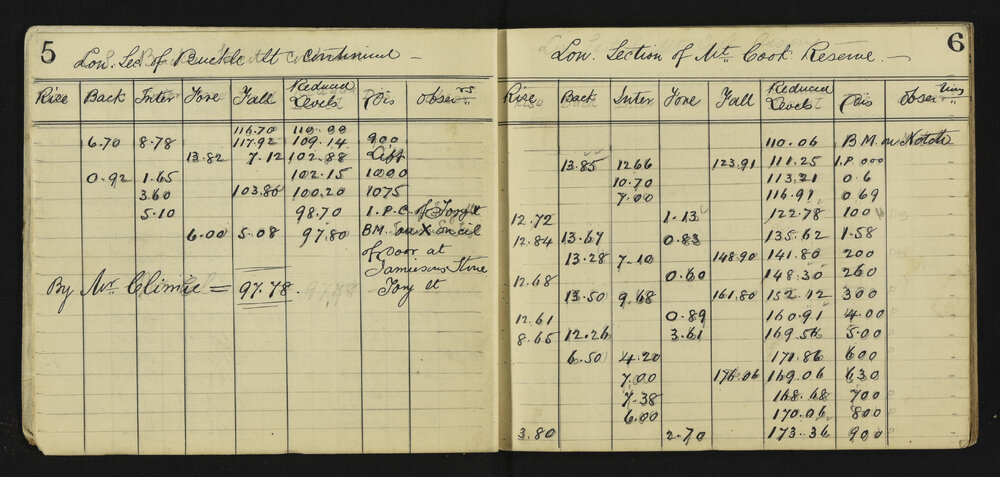 5
Lon. Sec of Buckle St continued
Rise Back Inter Fore Fall Reduced Levels Dis Observrs
116.70 110.00
6.70 8.78 117.92 109.14 900
13.82 7.12 102.88 Lift
0.92 1.65 102.15 1000
3.60 103.80 100.20 1075
5.10 98.70 I.P.C. of Tory St
6.00 5.08 97.80 B.M. on X on cil
of Door at
Jamiesons Store
Tory St
By Mr. Climie = 97.78
6
Lon. Section of Mt. Cook Reserve
Rise Back Inter Fore Fall Reduced Levels Dis Observtions
110.06 B.M. on Notch
13.85 1266 123.91 111.25 I.P 000
10.70 113.21 0.6
7.00 116.91 0.69
12.72 1.13 122.78 100
12.84 13.67 0.83 135.62 1.58
13.28 7.10 148.90 141.80 200
12.68 0.60 148.30 260
13.50 9.68 161.80 152.12 300
12.61 0.89 160.91 4.00
8.65 12.26 3.61 169.56 5.00
6.50 4.20 171.86 600
7.00 176.06 169.06 630
7.38 168.68 700
6.00 170.06 800
3.80 2.70 173.36 900